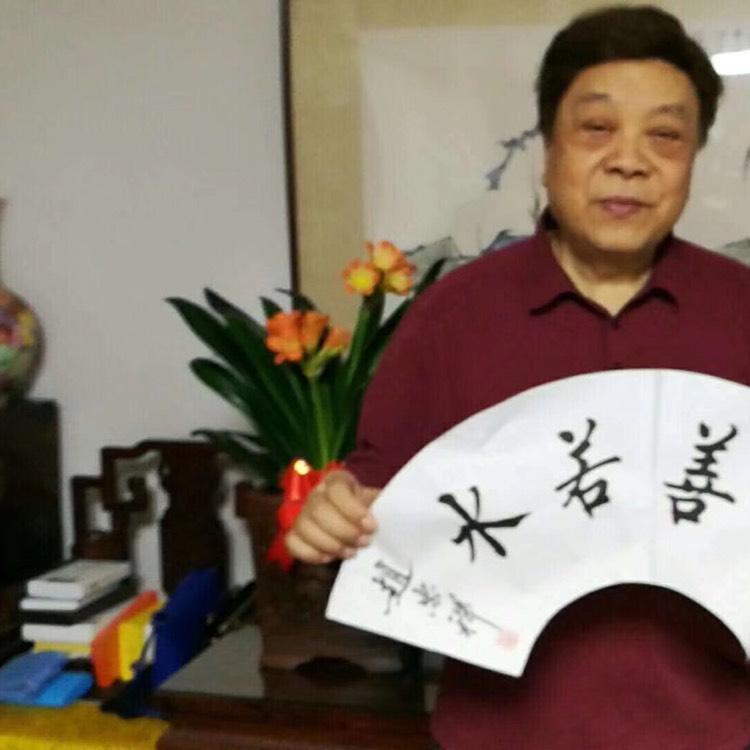 善若水
趙忠祥